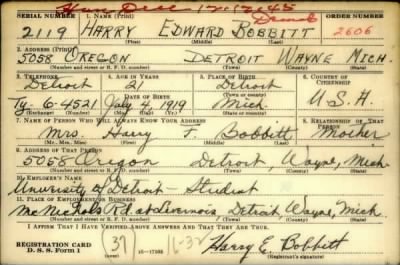 Hon Disc 12-12-45
SERIAL NUMBER 1. NAME (Print) ORDER NUMBER
2119 HARRY EDWARD BOBBITT 2606
(First) (Middle) (Last)
2. ADDRESS (Print)
5058 OREGON DETROIT WAYNE MICH.
(Number and street or R. F. D. number) (Town) (County) (State)
3. TELEPHONE 4. AGE IN YEARS 5. PLACE OF BIRTH 6. COUNTRY OF CITIZENSHIP
Detroit 21 Detroit
DATE OF BIRTH
Ty- 6-4521 July 4, 1919 Mich. U.S.A.
(Exchange) (Number) (Mo.) (Day) (Yr.) (State or country)
7. NAME OF PERSON WHO WILL ALWAYS KNOW YOUR ADDRESS 8. RELATIONSHIP OF THAT PERSON
Mrs. Harry F. Bobbitt Mother
(Mr., Mrs., Miss) (First) (Middle) (Last)
9. ADDRESS OF THAT PERSON
5058 Oregon Detroit, Wayne, Mich.
(Number and street or R. F. D. number) (Town) (County) (State)
10. EMPLOYER'S NAME
University of Detroit - Student
11. PLACE OF EMPLOYMENT OR BUSINESS
McNichols Rd. at Livernois, Detroit, Wayne, Mich.
(Number and street or R. F. D. number) (Town) (County) (State)
I AFFIRM THAT I HAVE VERIFIED ABOVE ANSWERS AND THAT THEY ARE TRUE.
REGISTRATION CARD
D. S. S. Form 1 (37) 16-17105 Harry E. Bobbitt
(Registrant's signature)